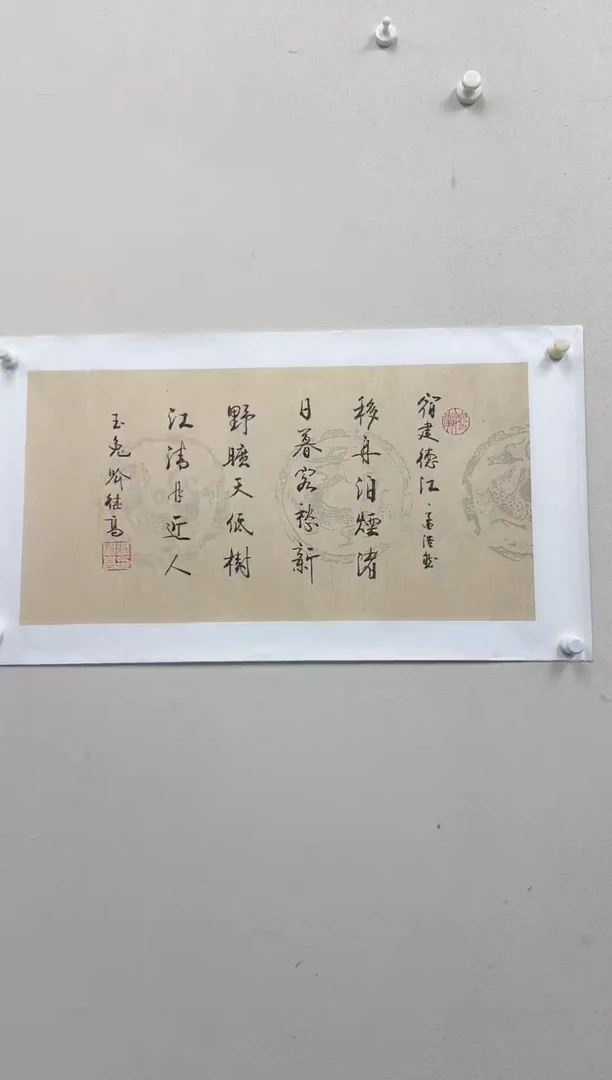 宿建德江 孟浩然
移舟泊煙渚
日暮客愁新
野曠天低樹
江清月近人
玉兔 継高